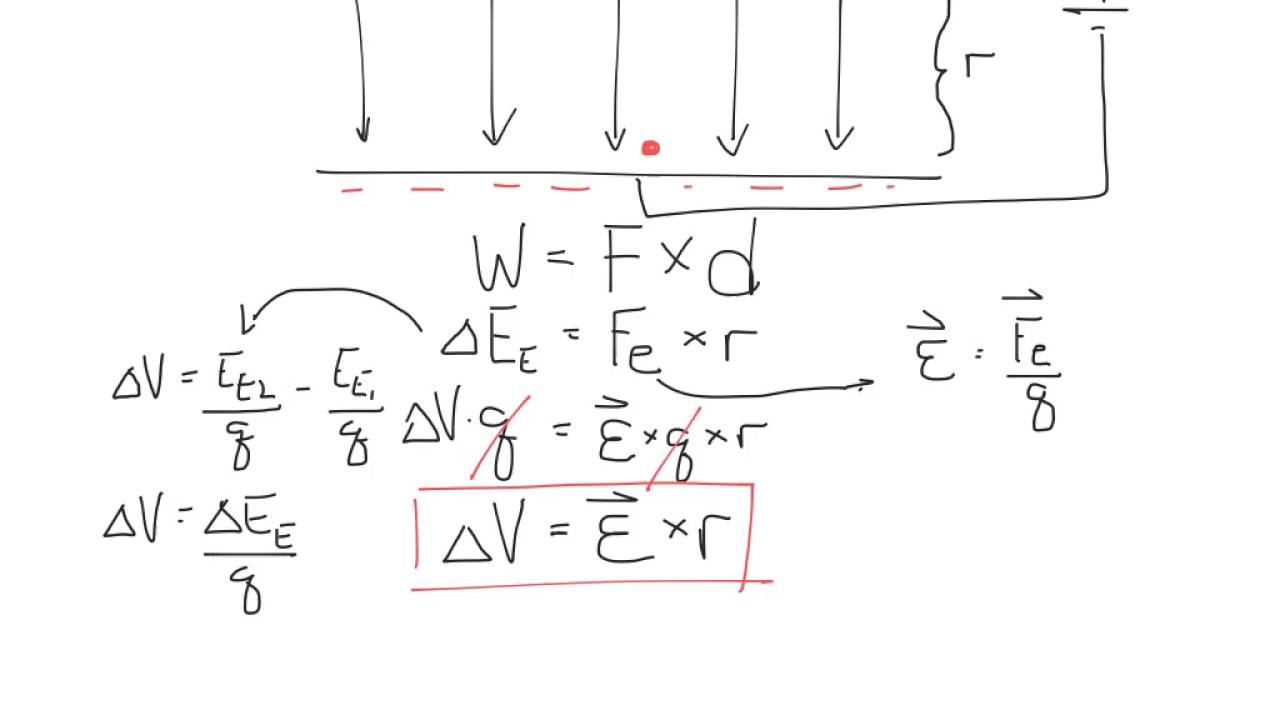 r
W = F × d
ΔE_E = F_e × r
ε⃗ = F⃗_e / q
ΔV = E_E2 / q − E_E1 / q
ΔV · q = ε⃗ × q × r
ΔV = ΔE_E / q
ΔV = ε⃗ × r